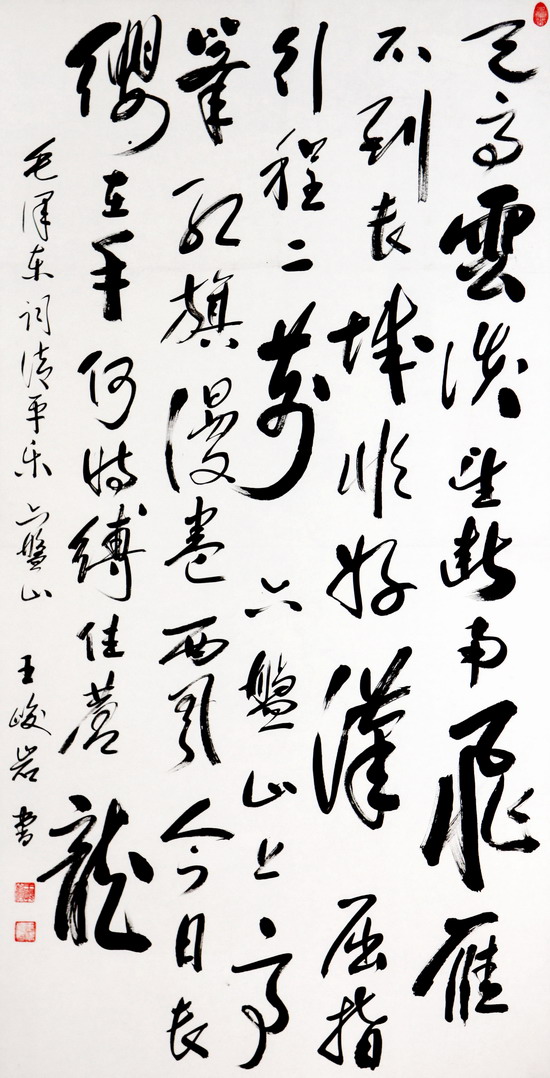 天高雲淡望断南飛雁
不到长城非好漢屈指
行程二萬六盤山上高
峯红旗漫卷西风今日长
缨在手何時缚住蒼龍
毛泽东词清平乐六盤山 王峻岩書